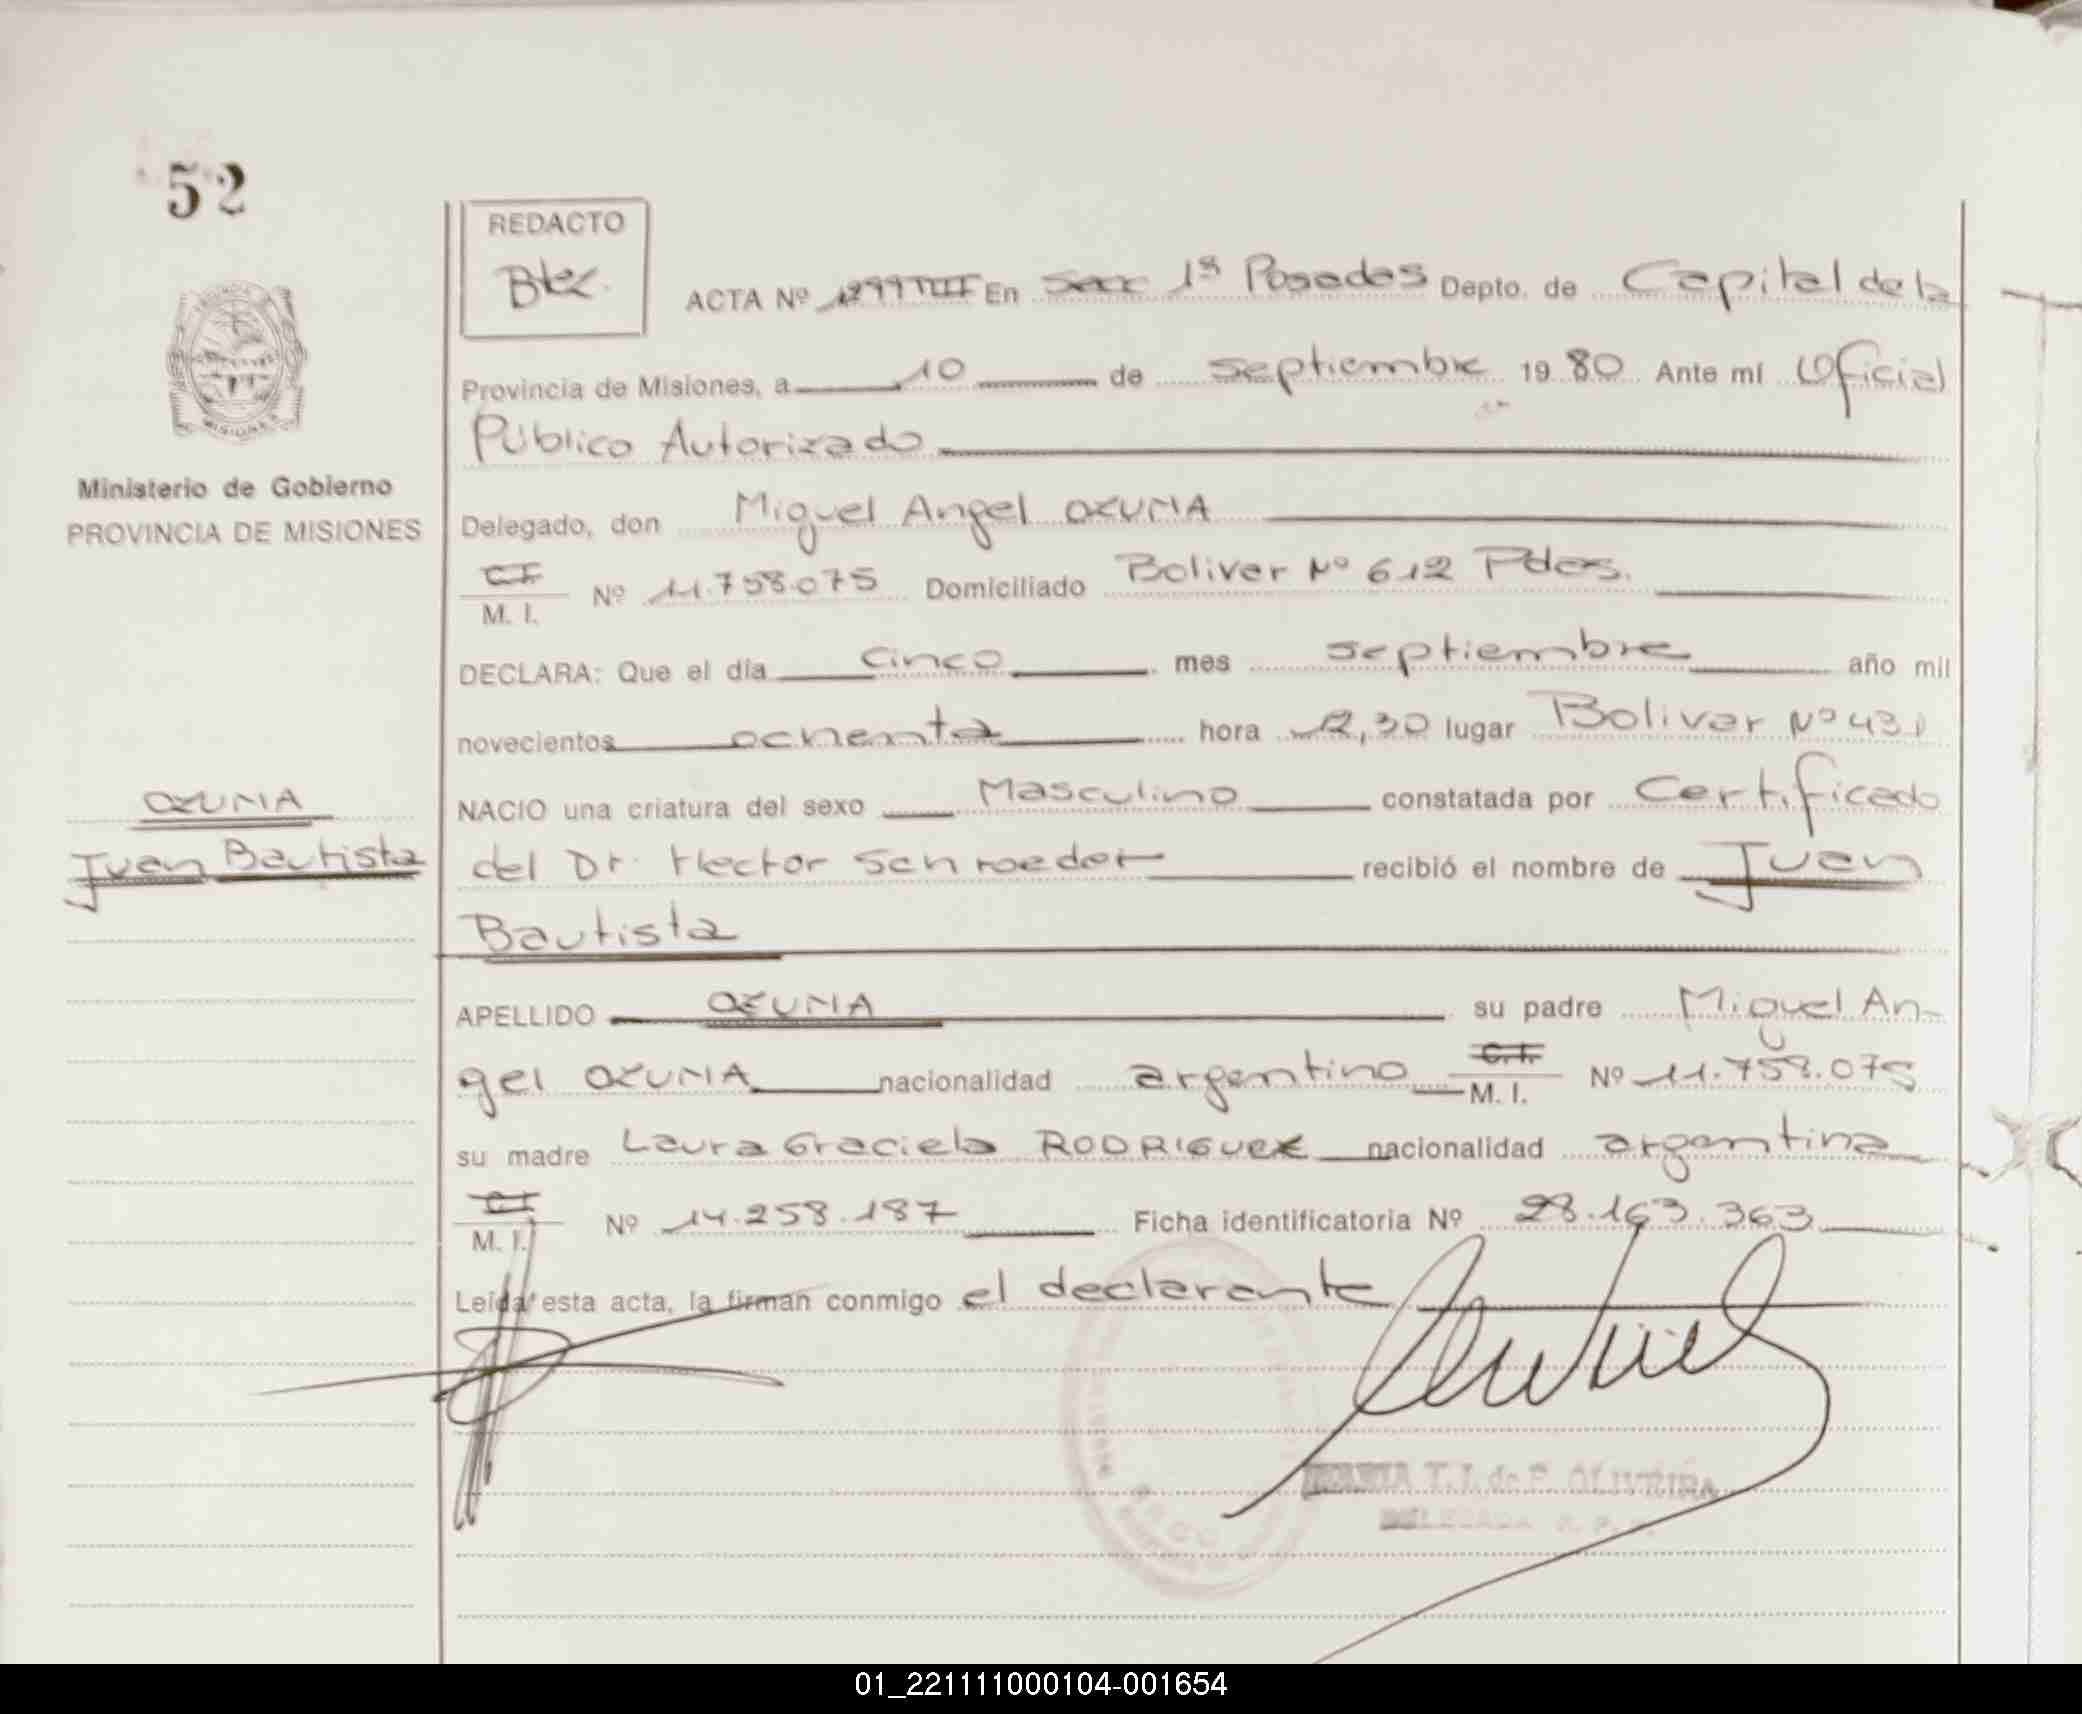 52
REDACTO
Btez.
ACTA Nº 1299 TIII En Secc 1ª Posadas Depto. de Capital de la
Provincia de Misiones, a 10 de septiembre 19 80 Ante mí Oficial
Público Autorizado
Ministerio de Gobierno
PROVINCIA DE MISIONES
Delegado, don Miguel Angel OZUNA
C.I. M. I. Nº 11.758.075 Domiciliado Bolivar Nº 612 Pdas.
DECLARA: Que el día cinco mes septiembre año mil
novecientos ochenta hora 12,30 lugar Bolivar Nº 431
OZUNA
Juan Bautista
NACIO una criatura del sexo Masculino constatada por Certificado
del Dr. Hector Schroeder recibió el nombre de Juan
Bautista
APELLIDO OZUNA su padre Miguel An-
gel OZUNA nacionalidad argentino C.I. M. I. Nº 11.758.075
su madre Laura Graciela RODRIGUEZ nacionalidad argentina
C.I. M. I. Nº 14.258.187 Ficha identificatoria Nº 28.163.363
Leída esta acta, la firman conmigo el declarante
MARIA T. J. de F. OLIVEIRA
DELEGADA
01_221111000104-001654